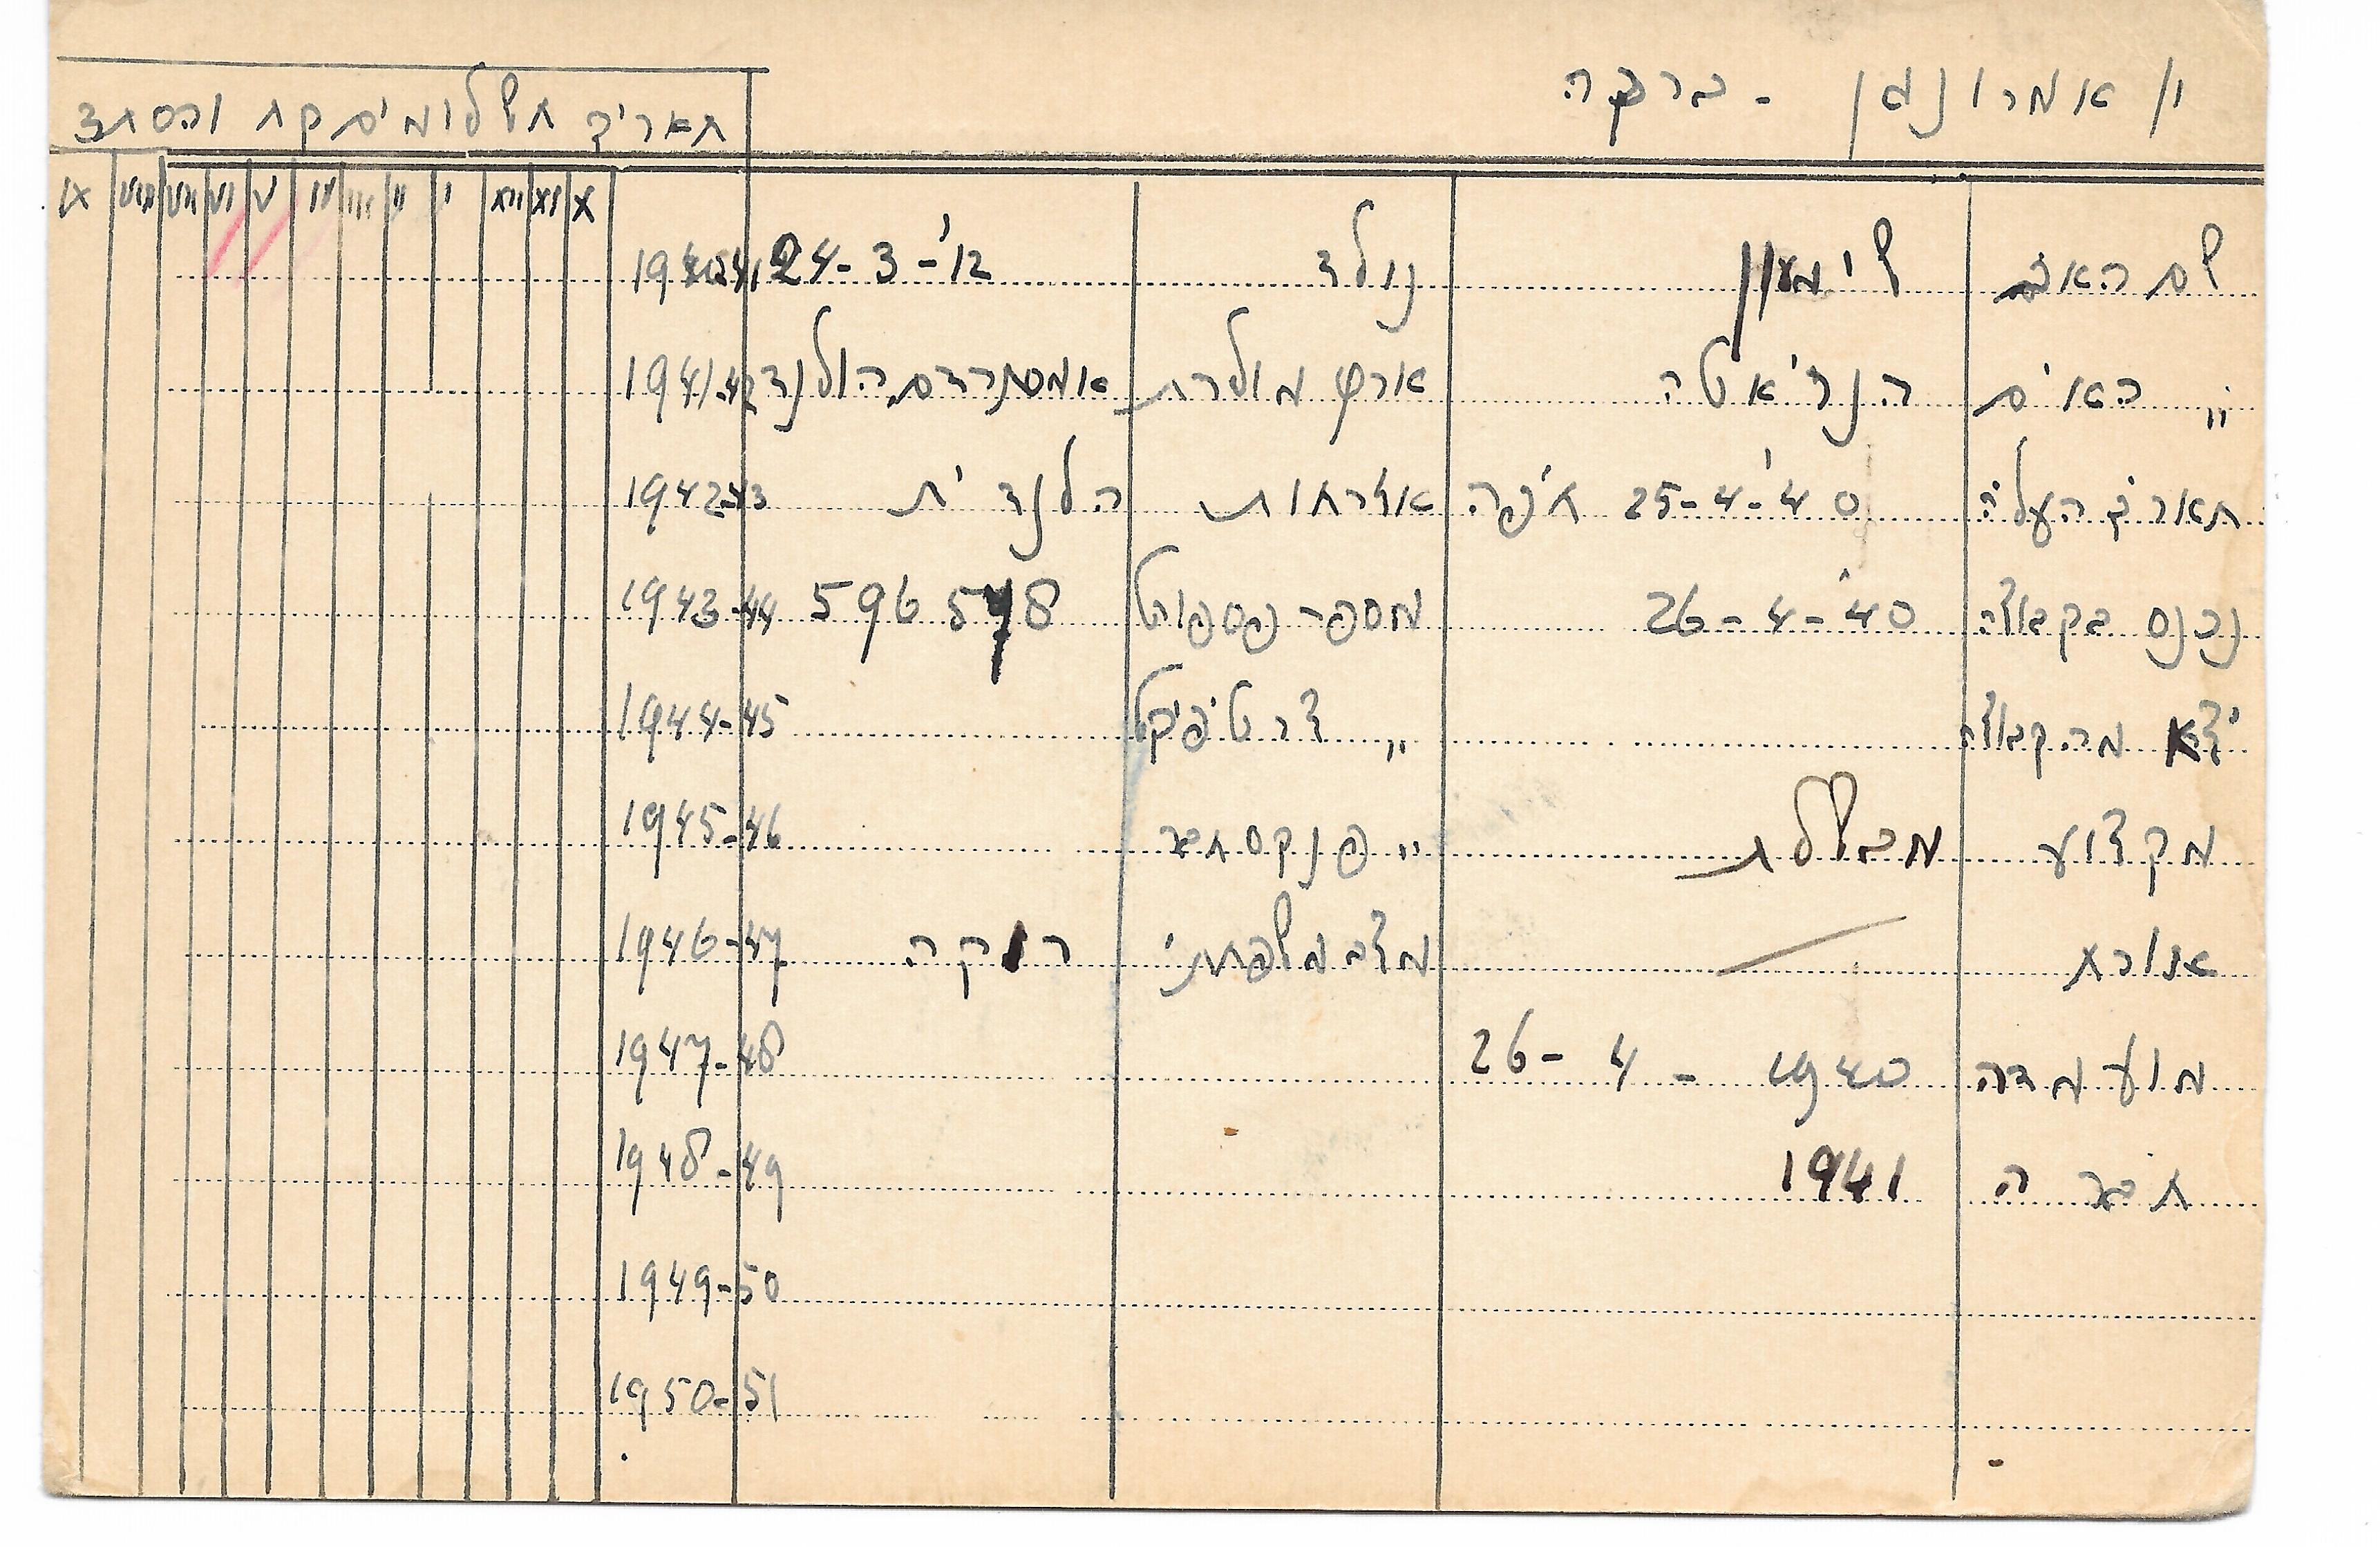 י/ אמרונגן - ברכה
תאריך תשלומים קח והסתד
X XI XII I II III IV V VI VII VIII IX
שם האב שימעון נולד 24-3-'12 1940-41
„ האים הנריאטה ארץ מולדת אמסתרדם, הולנד 1941-42
תאריך העליה 25-4-'40 חיפה אזרחות הלנדית 1942-43
נכנס בקבוצה 26-4-'40 מספר פספורט 596 548 1943-44
יצא מהקבוצה „ צרטיפיקט 1944-45
מקצוע מבשלת „ פנקס חבר 1945-46
אורח מצב משפחתי רוקה 1946-47
מועמדה 26-4-1940 1947-48
חברה 1941 1948-49
1949-50
1950-51